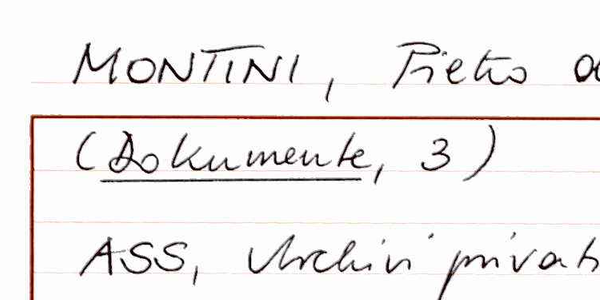 MONTINI, Pietro
(Dokumente, 3)
ASS, Archivi privati